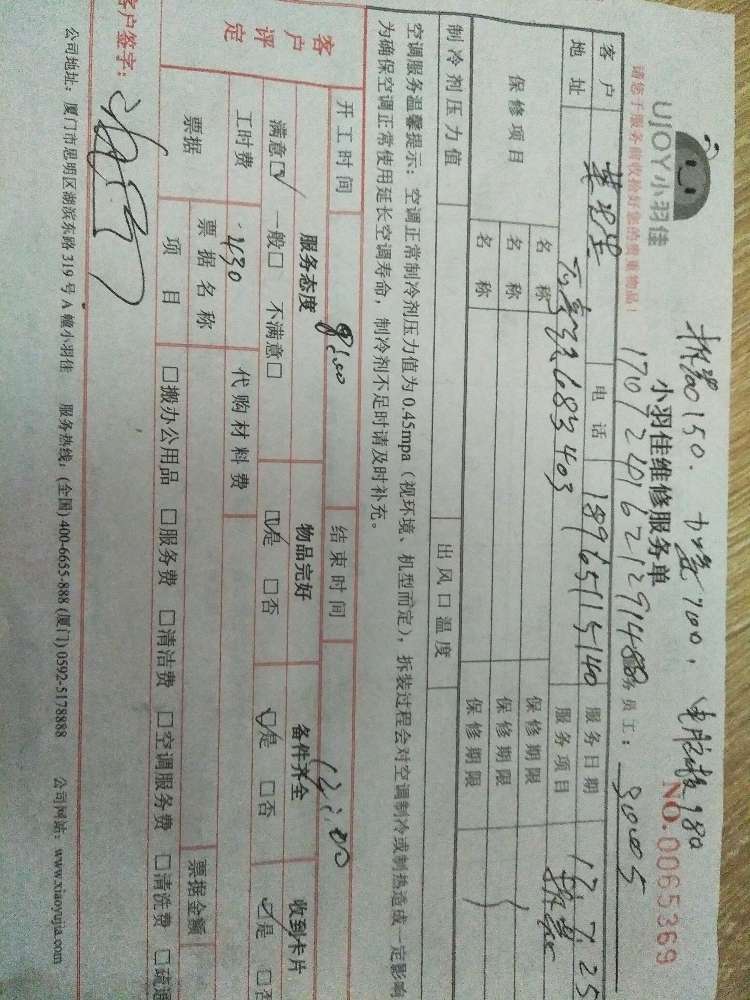 UJOY小羽佳
小羽佳维修服务单
NO.0065369
请您于服务前收拾好您的贵重物品!
员工: 90005
客户
电话 18965115140
服务日期 17.7.25
地址
683403
服务项目
保修项目
名称
保修期限
名称
保修期限
名称
保修期限
制冷剂压力值
出风口温度
空调服务温馨提示: 空调正常制冷剂压力值为 0.45mpa (视环境、机型而定), 拆装过程会对空调制冷或制热造成一定影响
为确保空调正常使用延长空调寿命, 制冷剂不足时请及时补充。
开工时间
9:00
结束时间
12:00
客户评定
服务态度
物品完好
备件齐全
收到卡片
满意☑ 一般□ 不满意□
☑是 □否
☑是 □否
☑是 □否
工时费
430
代购材料费
票据
票据名称
票据金额
项目
□搬办公用品 □服务费 □清洁费 □空调服务费 □清洗费 □疏通
客户签字:
公司地址: 厦门市思明区湖滨东路 319 号 A 幢小羽佳 服务热线: (全国) 400-6655-888 (厦门) 0592-5178888 公司网站: www.xiaoyujia.com